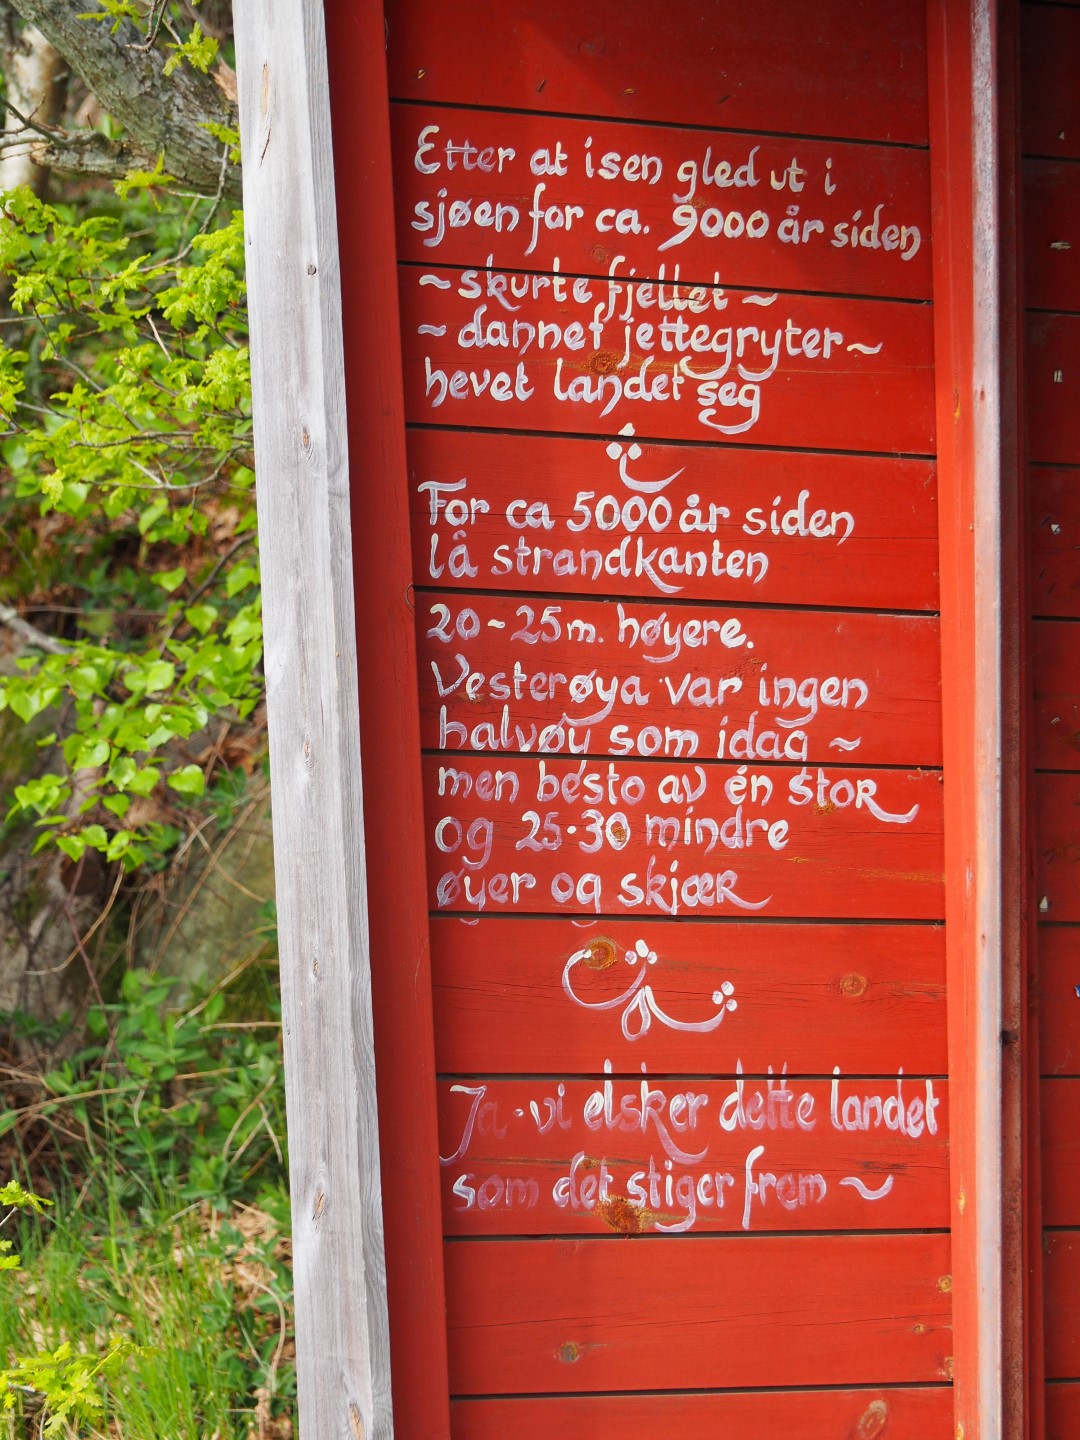 Etter at isen gled ut i
sjøen for ca. 9000 år siden
~ skurte fjellet ~
~ dannet jettegryter ~
hevet landet seg
For ca 5000 år siden
lå strandkanten
20-25m. høyere.
Vesterøya var ingen
halvøy som idag ~
men besto av én stor
og 25-30 mindre
øyer og skjær
Ja - vi elsker dette landet
som det stiger frem ~